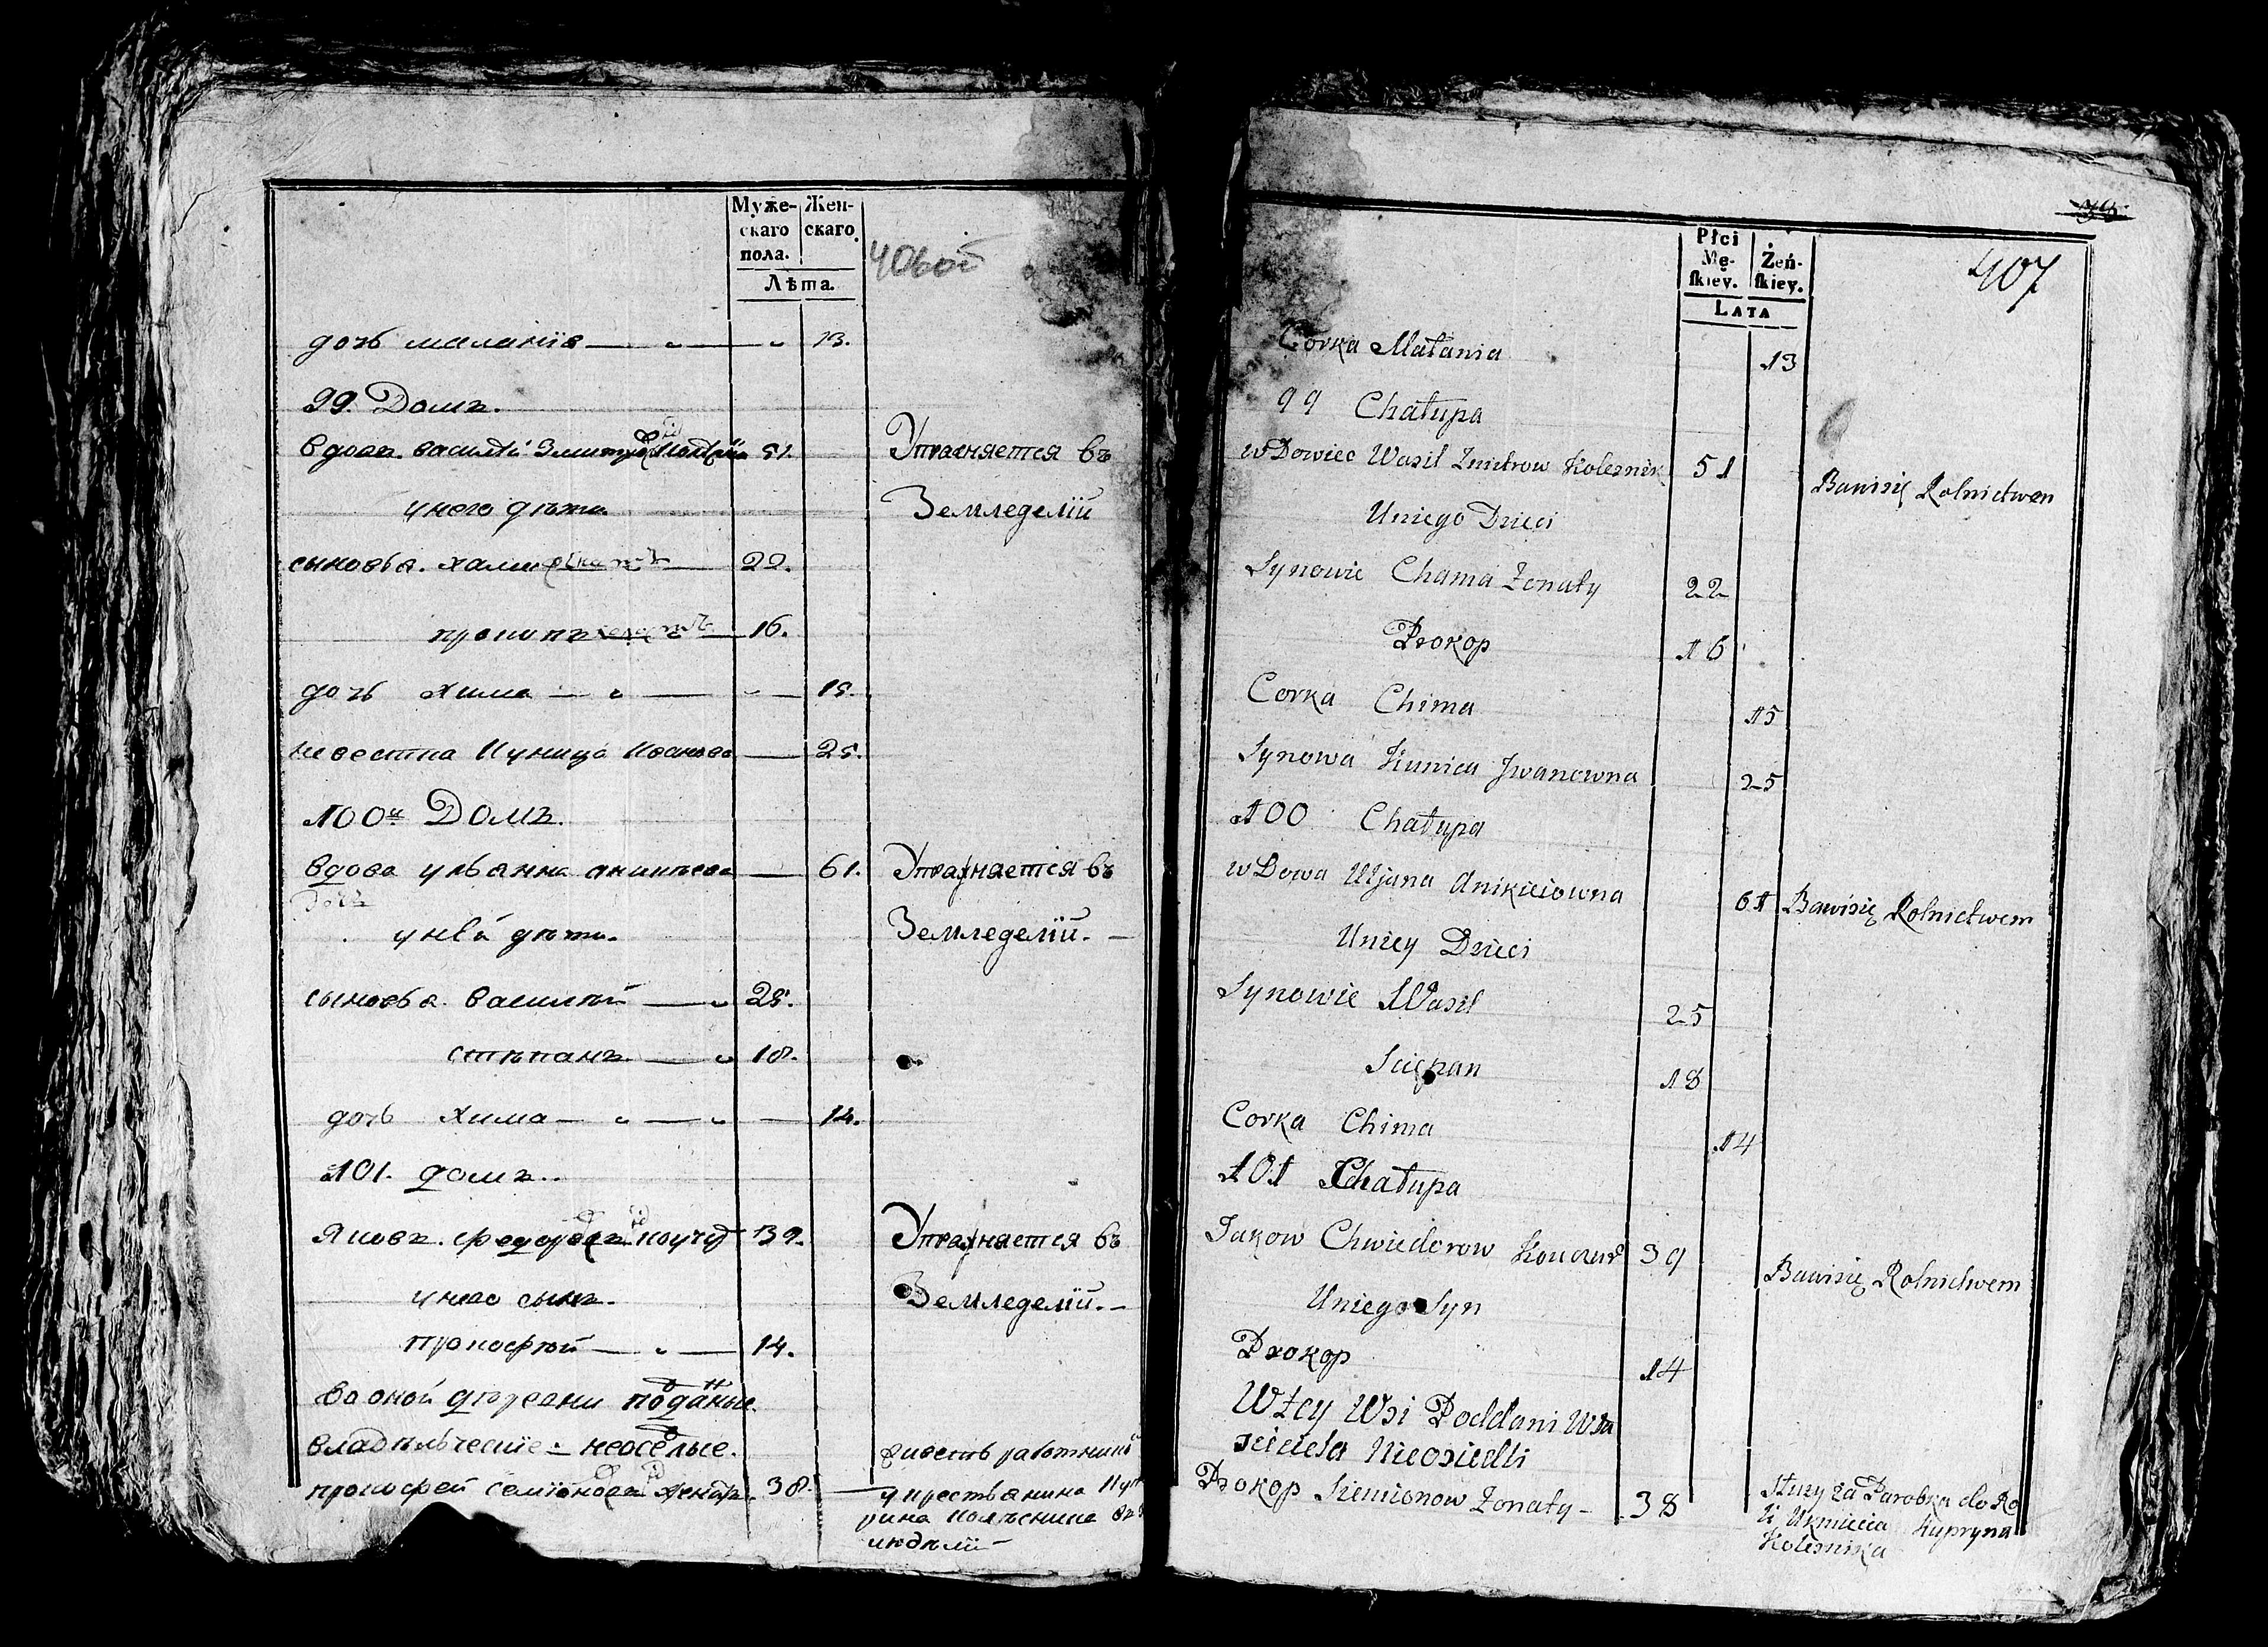 Муже-
скаго
пола.
Жен-
скаго.
Лѣта.
406об
дочь маланiя — 13.
99. Домъ.
вдовъ василей Змитровъ 51. Упражняется въ
унего дѣти Земледелiи
сыновья. хама 22.
прокопъ 16.
дочь хима — 15.
невестка Куница Иванова — 25.
100й Домъ.
вдова ульянна аникѣева — 61. Упражняется въ
унѣй дѣти. Земледелiи. —
сыновья василей — 25.
стѣпанъ — 18.
дочь хима — 14.
101. домъ.
Яковъ. федоровъ коучуръ 39. Упражняется въ
унего сынъ. Земледелiи. —
прокофей — 14.
во оной дѣревни поданые
владѣлческие неоселые.
прокофей семiоновъ женатъ. 38.
у крестьянина
людѣми
39
407
Płci
Mę-
ſkiey.
Żeń-
ſkiey.
LATA
Corka Małania 13
99 Chałupa
wDowiec Wasil Zmitrow Kolesnik 51 Bawisię Rolnictwem
Uniego Dzieci
Synowie Chama Żonaty 22
Prokop 16
Corka Chima 15
Synowa Kunica Jwanowna 25
100 Chałupa
wDowa Uljana Anikieiowna 61 Bawisię Rolnictwem
Uniey Dzieci
Synowie Wasil 25
Sciepan 18
Corka Chima 14
101 Chałupa
Jakow Chwiedorow Kouczur 39 Bawisię Rolnictwem
Uniego Syn
Prokop 14
Wtey Wsi Poddani Wła
sciciela Nieosiedli
Prokop Siemionow Żonaty - 38 Służy za Parobka do Ro
li Ukmiecia Kupryna
Kolesnika